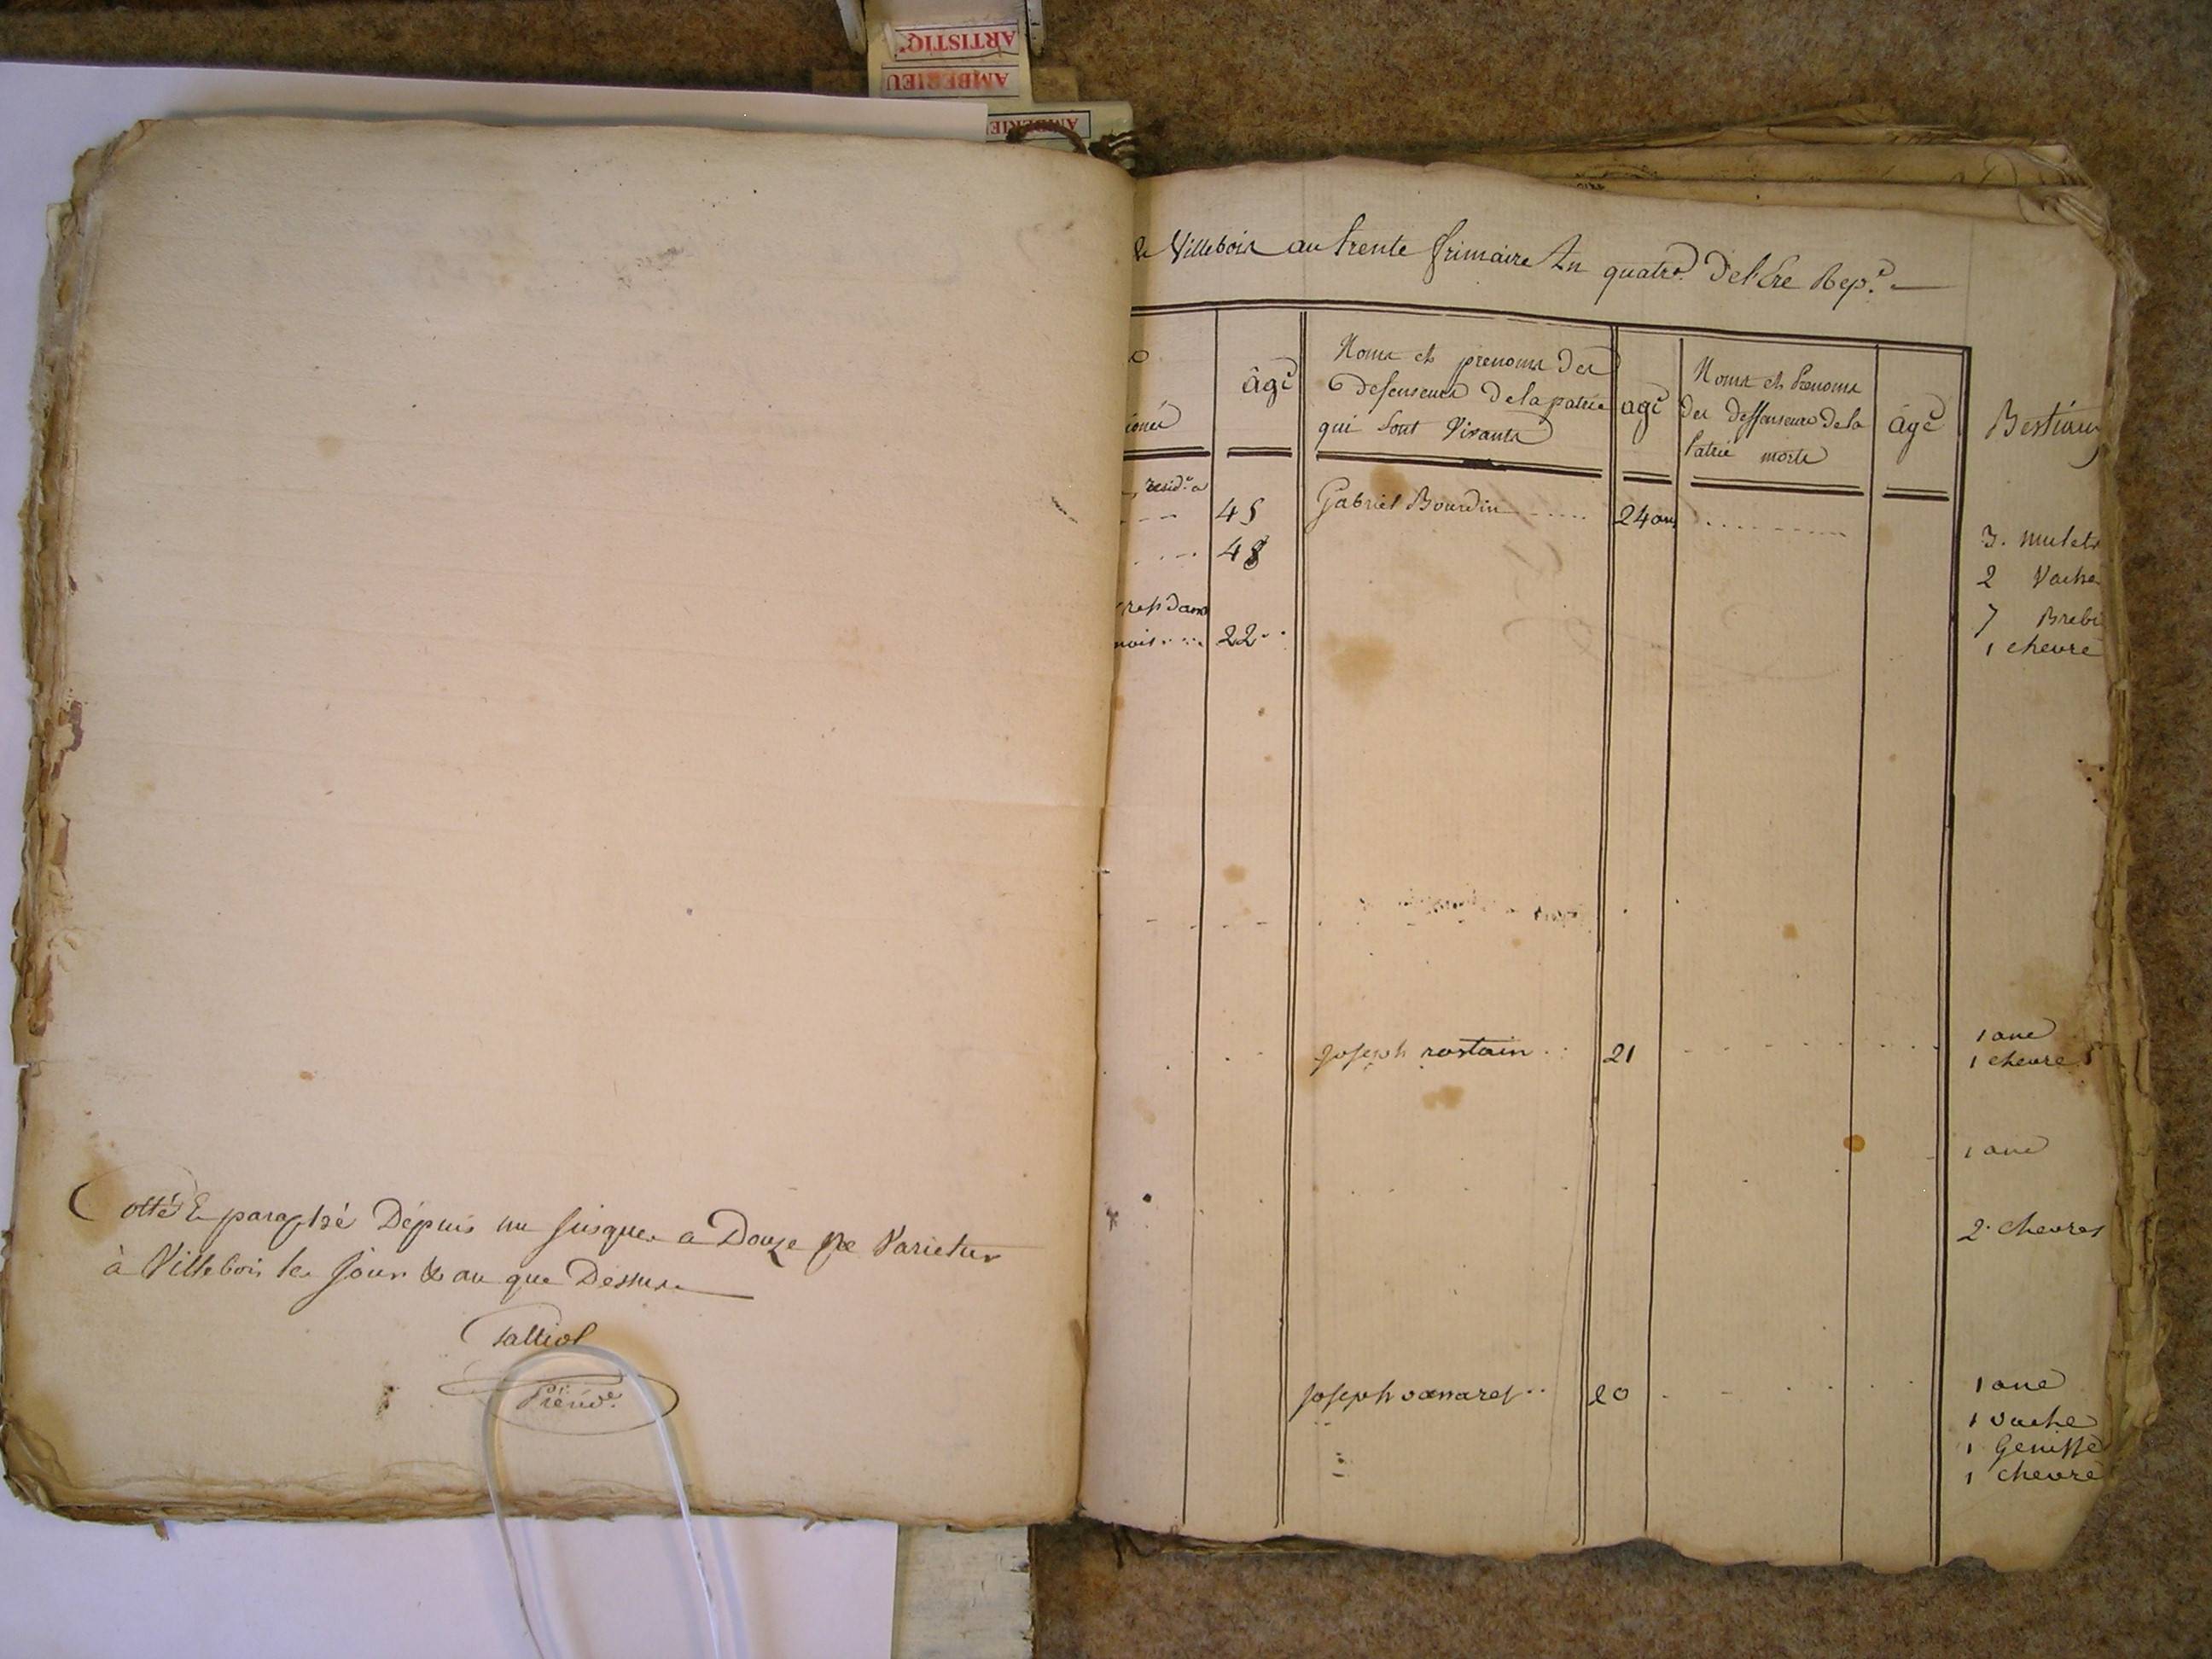 ARTISTIQ
AMBERIEU
AMBERIE
Cotté & paraphé Depuis un jusques a Douze Ne Varietur
à Villebois les jour & an que Dessus
Présid.
Villebois au trente frimaire An quatre. De l'Ere Rep.e
âgé
Noms et prenoms Des
Defenseurs De la patrie
qui sont Vivants
agé
Noms et Prenoms
Des deffenseurs De la
Patrie morts
âgé
Bestiaux
resid.t a
45
Gabriel Bourdin
24 ans
48
22
3. mulets
2 Vache
7 Brebi
1 chevre
Joseph rostain
21
1 ane
1 chevre
1 ane
2. chevres
Joseph
20
1 ane
1 vache
1 Genisse
1 chevre